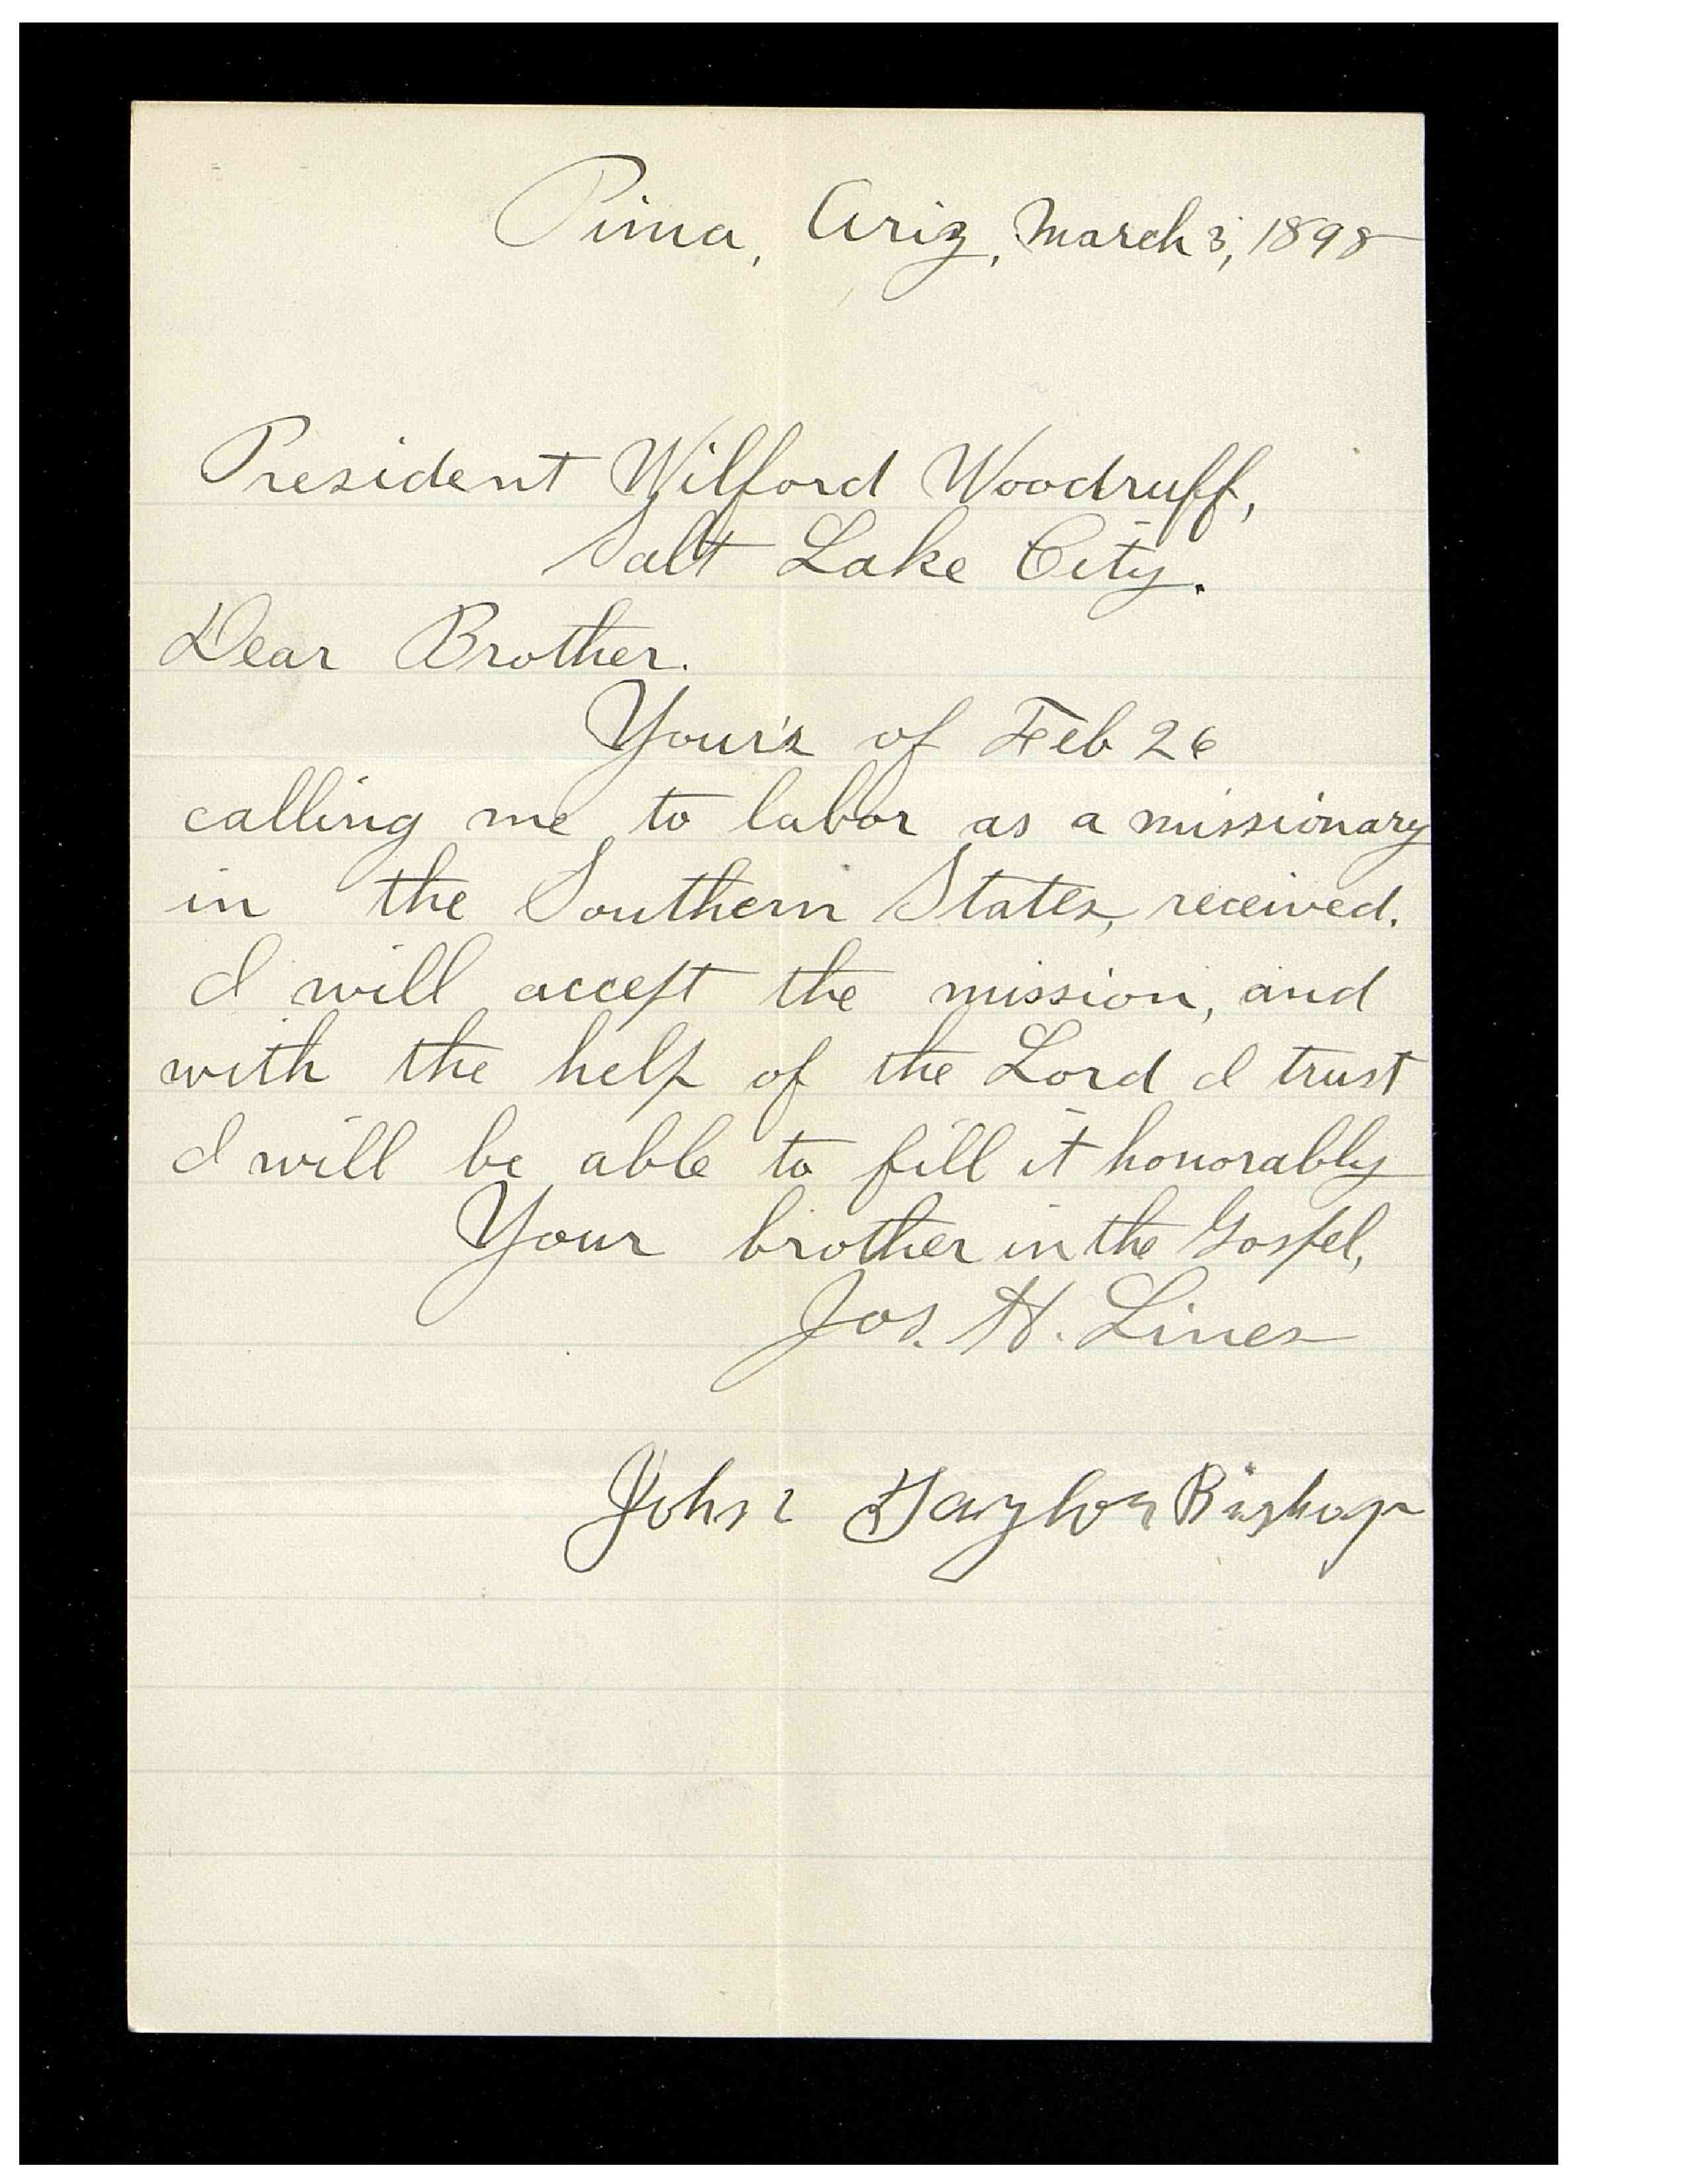 Pima, Ariz, March 3, 1898
President Wilford Woodruff,
Salt Lake City.
Dear Brother.
Your's of Feb 26
calling me to labor as a missionary
in the Southern States, received.
I will accept the mission, and
with the help of the Lord I trust
I will be able to fill it honorably
Your brother in the Gospel,
Jos. H. Lines
John Taylor Bishop